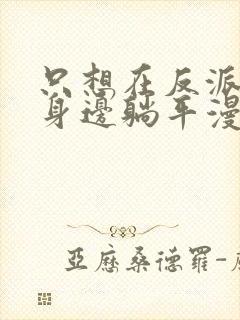 只想在反派
身邊躺平漫
亞歷桑德羅-